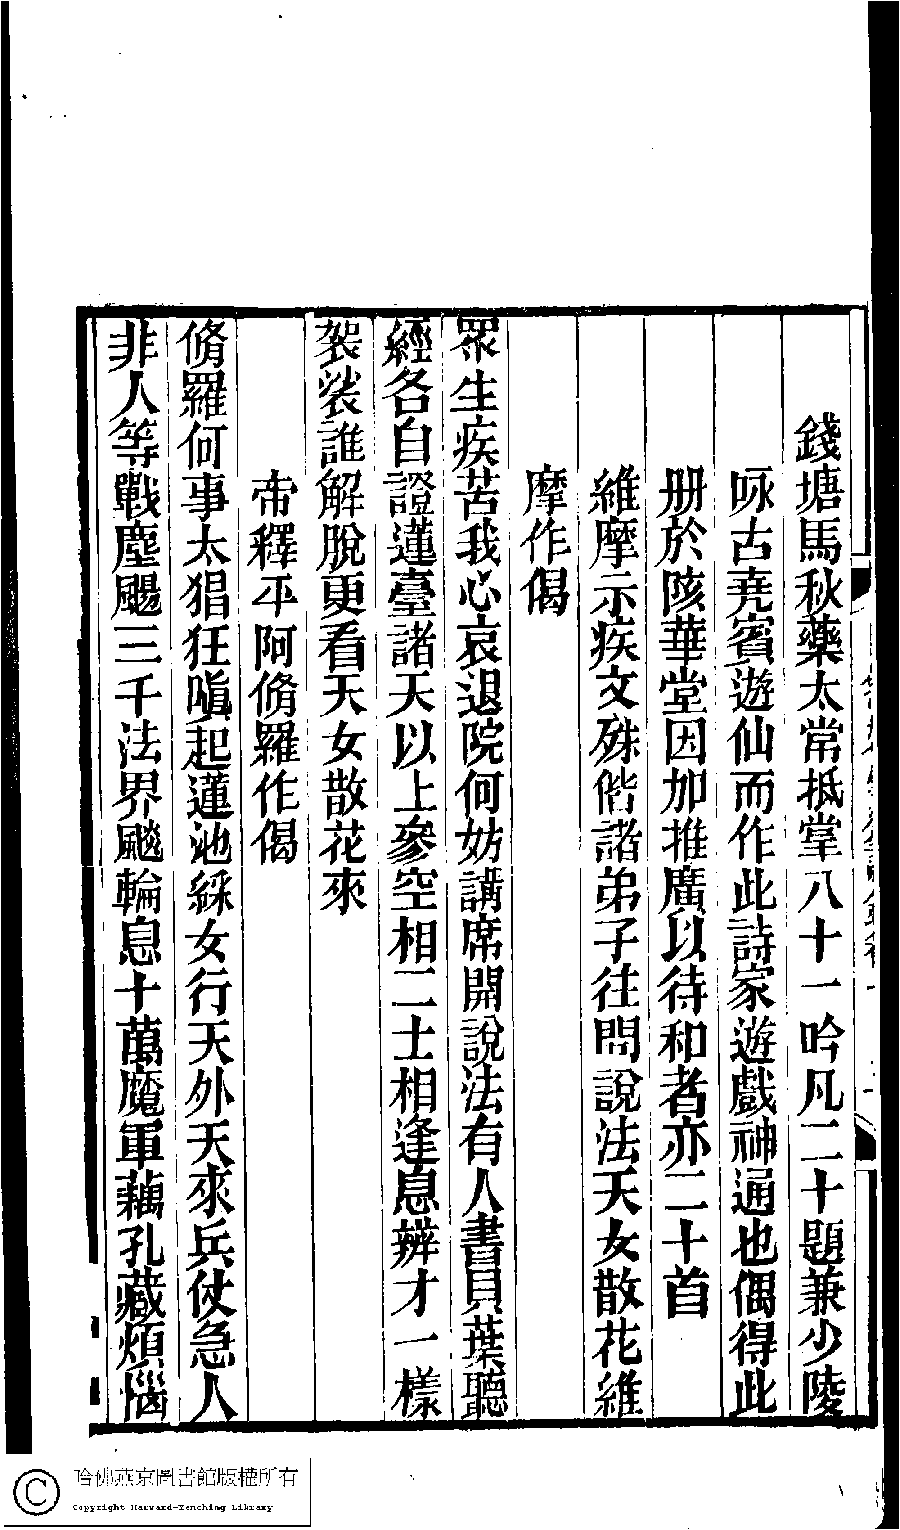 錢塘馬秋藥太常抵掌八十一吟凡二十題兼少陵
咏古堯賓遊仙而作此詩家遊戲神通也偶得此
册於陔華堂因加推廣以待和者亦二十首
維摩示疾文殊偕諸弟子往問說法天女散花維
摩作偈
眾生疾苦我心哀退院何妨講席開說法有人書貝葉聽
經各自證蓮臺諸天以上參空相二士相逢息辨才一樣
袈裟誰解脫更看天女散花來
帝釋平阿脩羅作偈
脩羅何事太猖狂嗔起蓮池綵女行天外天求兵仗急人
非人等戰塵颺三千法界飈輪息十萬魔軍藕孔藏煩惱
哈佛燕京圖書館版權所有
Copyright Harvard-Yenching Library